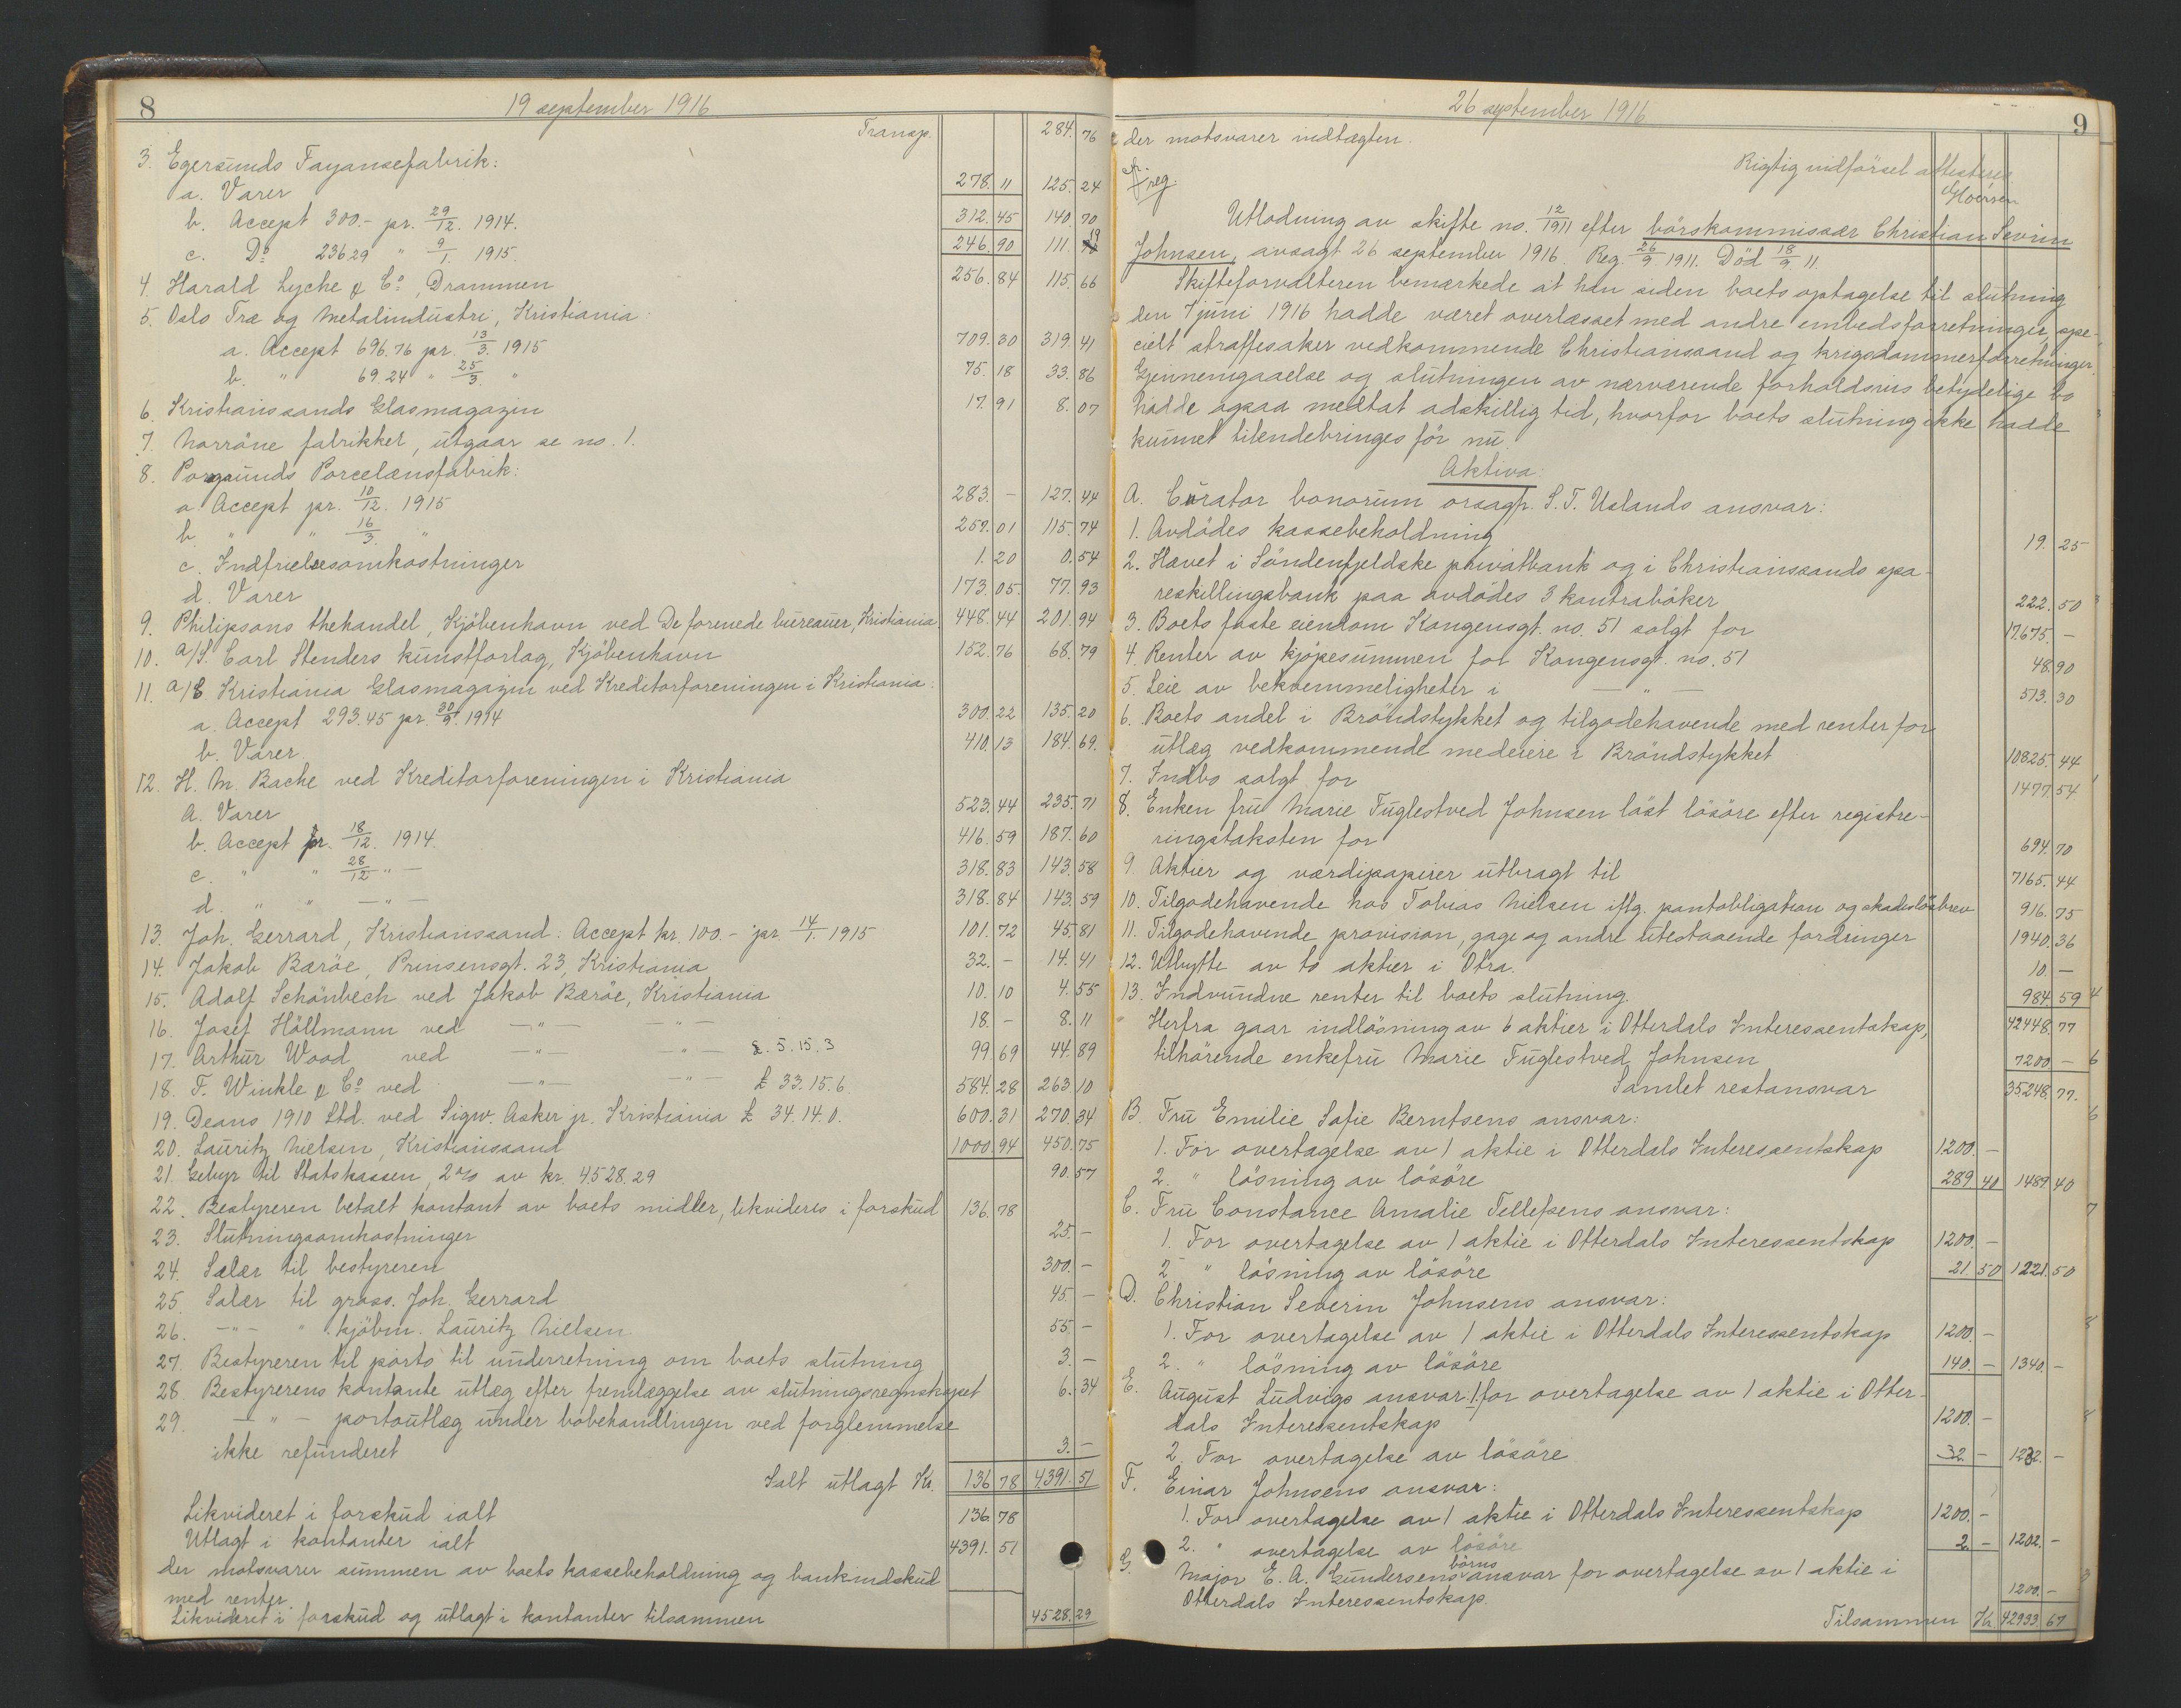 8
19 september 1916
Transp. 284. 76
3. Egersunds Fayansefabrik:
a. Varer 278. 11 125. 24
b. Accept 300.- pr. 29/12. 1914. 312. 45 140. 70
c. Do 236.29 " 9/1. 1915. 246. 90 111. 19
4. Harald Lyche & Co, Drammen 256. 84 115. 66
5. Oslo Træ og Metalindustri, Kristiania:
a. Accept 696.76 pr. 13/3. 1915 709. 30 319. 41
b. " 69.24 " 25/3. " 75. 18 33. 86
6. Kristianssands Glasmagazin 17. 91 8. 07
7. Norröne fabrikker, utgaar se no. 1.
8. Porsgrunds Porcelænsfabrik:
a. Accept pr. 10/12. 1915 283. - 127. 44
b. " " 16/3. " 257. 01 115. 74
c. Indfrielsesomkostninger 1. 20 0. 54
d. Varer 173. 05. 77. 93
9. Philipsons thehandel, Kjöbenhavn ved De forenede bureauer, Kristiania 448. 44 201. 94
10. a/S. Carl Stenders kunstforlag, Kjöbenhavn 152. 76 68. 79
11. a/S Kristiania Glasmagazin ved Kreditorforeningen i Kristiania:
a. Accept 293.45 pr. 30/9. 1914 300. 22 135. 20
b. Varer 410. 13 184. 69.
12. H. M. Bache ved Kreditorforeningen i Kristiania
a. Varer 523. 44 235. 71
b. Accept pr. 18/12. 1914. 416. 59 187. 60
c. " " 28/12 " - 318. 83 143. 58
d. " " - " - 318. 84 143. 59
13. Joh. Gerrard, Kristianssand: Accept kr. 100.- pr. 14/1. 1915 101. 72 45. 81
14. Jakob Bæröe, Prinsensgt. 23, Kristiania 32. - 14. 41
15. Adolf Schönbech ved Jakob Bæröe, Kristiania 10. 10 4. 55
16. Josef Höllmann ved - " - - " - 18. - 8. 11
17. Arthur Wood ved - " - - " - £. 5. 15. 3 99. 69 44. 89
18. F. Winkle & Co ved - " - - " - £ 33. 15. 6 584. 28 263. 10
19. Deans 1910 Ltd. ved Sigw. Asker jr. Kristiania £ 34. 14. 0. 600. 31 270. 34
20. Lauritz Nielsen, Kristianssand 1000. 94 450. 75
21. Gebyr til Statskassen, 2% av kr. 4528.29 90. 57
22. Bestyreren betalt kontant av boets midler, likvideres i forskud 136. 78
23. Slutningsomkostninger 25. -
24. Salær til bestyreren 300. -
25. Salær til gross. Joh. Gerrard 45. -
26. - " - " kjöbm. Lauritz Nielsen 55. -
27. Bestyreren til porto til underretning om boets slutning 3. -
28. Bestyrerens kontante utlæg efter fremlæggelse av slutningsregnskapet 6. 34
29. - " - portoutlæg under bobehandlingen ved forglemmelse
ikke refunderet 3. -
Ialt utlagt Kr. 136 78 4391. 51
Likvideret i forskud ialt 136. 78
Utlagt i kontanter ialt 4391. 51
der motsvarer summen av boets kassebeholdning og bankindskud
med renter.
Likvideret i forskud og utlagt i kontanter tilsammen 4528. 29
26 september 1916
9
der motsvarer indtægten.
Rigtig indförsel attesteres
reg.
Utlodning av skifte no. 12/1911 efter börskommissær Christian Severin
Johnsen, avsagt 26 september 1916. Reg. 26/9 1911. Död 18/9 11.
Skifteforvalteren bemærkede at han siden boets optagelse til slutning
den 7 juni 1916 hadde været overlæsset med andre embedsforretninger, spe-
cielt straffesaker vedkommende Christianssand og krigsdommerforretninger.
Gjennemgaaelse og slutningen av nærværende forholdsvis betydelige bo
hadde ogsaa medtat adskillig tid, hvorfor boets slutning ikke hadde
kunnet tilendebringes för nu.
Aktiva:
A. Curator bonorum orsagf. S. T. Uslands ansvar:
1. Avdödes kassebeholdning 19. 25
2. Hævet i Söndenfjeldske privatbank og i Christianssands spa-
reskillingsbank paa avdödes 3 kontraböker 222. 50
3. Boets faste eiendom Kongensgt. no. 51 solgt for 17675. -
4. Renter av kjöpesummen for Kongensgt. no. 51 48. 90
5. Leie av bekvemmeligheter i - " - 513. 30
6. Boets andel i Bröndstykket og tilgodehavende med renter for
utlæg vedkommende medeiere i Bröndstykket 10825. 44
7. Indbo solgt for 1477 54
8. Enken fru Marie Fuglestved Johnsen löst lösöre efter registre-
ringstaksten for 694. 70
9. Aktier og værdipapirer utbragt til 7165. 44
10. Tilgodehavende hos Tobias Nielsen iflg. pantobligation og skadeslösbrev 916. 75
11. Tilgodehavende provision, gage og andre utestaaende fordringer 1940. 36
12. Utbytte av to aktier i Otra. 10. -
13. Indvundne renter til boets slutning. 984 59
42448. 77
Herfra gaar indlösning av 6 aktier i Otterdals Interessentskap,
tilhörende enkefru Marie Fuglestved Johnsen 7200 -
Samlet restansvar 35.248. 77.
B. Fru Emilie Sofie Berntsens ansvar:
1. For overtagelse av 1 aktie i Otterdals Interessentskap 1200. -
2. " lösning av lösöre 289 40 1489 40
C. Fru Constance Amalie Tellefsens ansvar:
1. For overtagelse av 1 aktie i Otterdals Interessentskap 1200. -
2 " lösning av lösöre 21. 50 1221. 50
D. Christian Severin Johnsens ansvar:
1. For overtagelse av 1 aktie i Otterdals Interessentskap 1200. -
2. " lösning av lösöre 140. - 1340. -
E. August Ludvigs ansvar: 1. for overtagelse av 1 aktie i Otter-
dals Interessentskap 1200. -
2. For overtagelse av lösöre 32 - 1232. -
F. Einar Johnsens ansvar:
1. For overtagelse av 1 aktie i Otterdals Interessentskap 1200. -
2. " overtagelse av lösöre 2. - 1202. -
G. Major E. A. Gundersens börns ansvar for overtagelse av 1 aktie i
Otterdals Interessentskap. 1200. -
Tilsammen Kr. 42933 67